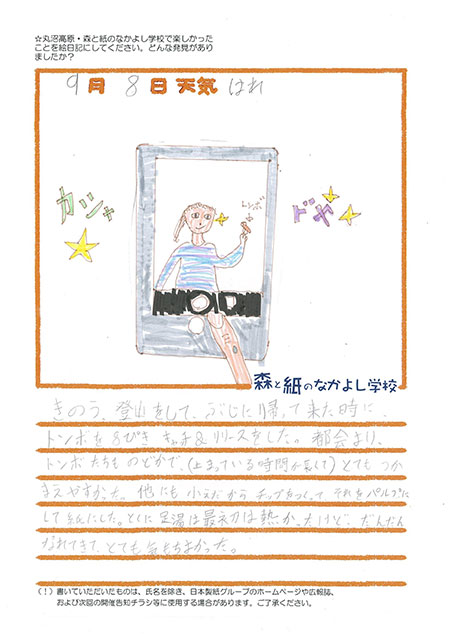 ☆丸沼高原・森と紙のなかよし学校で楽しかった
ことを絵日記にしてください。どんな発見があり
ましたか？
9月8日天気 はれ
カシャ
トンボ
ドヤ
森と紙のなかよし学校
きのう、登山をして、ぶじに帰って来た時に、
トンボを8ぴき キャッチ&リリースをした。都会より、
トンボたちものどかで、(止まっている時間が長くて)とてもつか
まえやすかった。他にも小えだからチップをつくって それをパルプに
して紙にした。とくに足湯は最初は熱かったけど、だんだん
なれてきて、とても気もちよかった。
(！)書いていただいたものは、氏名を除き、日本製紙グループのホームページや広報誌、
および次回の開催告知チラシ等に使用する場合があります。ご了承ください。